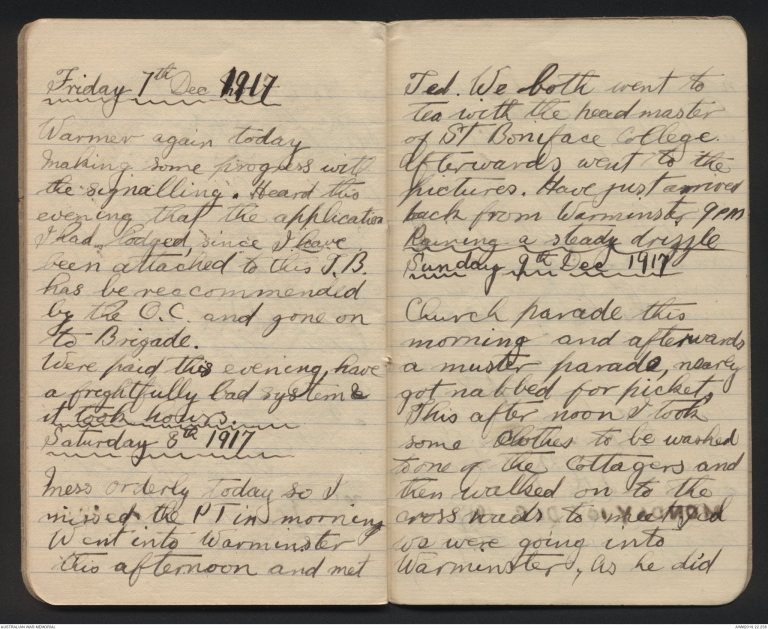 Friday 7th Dec 1917
Warmer again today
making some progress with
the signalling. Heard this
evening that the application
I had lodged, since I have
been attached to this T.B.
has be reccommended
by the O.C. and gone on
to Brigade.
Were paid this evening, have
a frightfully bad system &
it took hours.
Saturday 8th 1917
Mess orderly today so I
missed the PT in morning
Went into Warminster
this afternoon and met
Ted. We both went to
tea with the head master
of St Boniface College.
afterwards went to the
pictures. Have just arrived
back from Warminster 9pm
Raining a steady drizzle
Sunday 9th Dec 1917
Church parade this
morning and afterwards
a muster parade, nearly
got nabbed for picket,
This after noon I took
some clothes to be washed
to one of the Cottagers and
then walked on to the
cross roads to meet
we were going into
Warminster, As he did
AUSTRALIAN WAR MEMORIAL